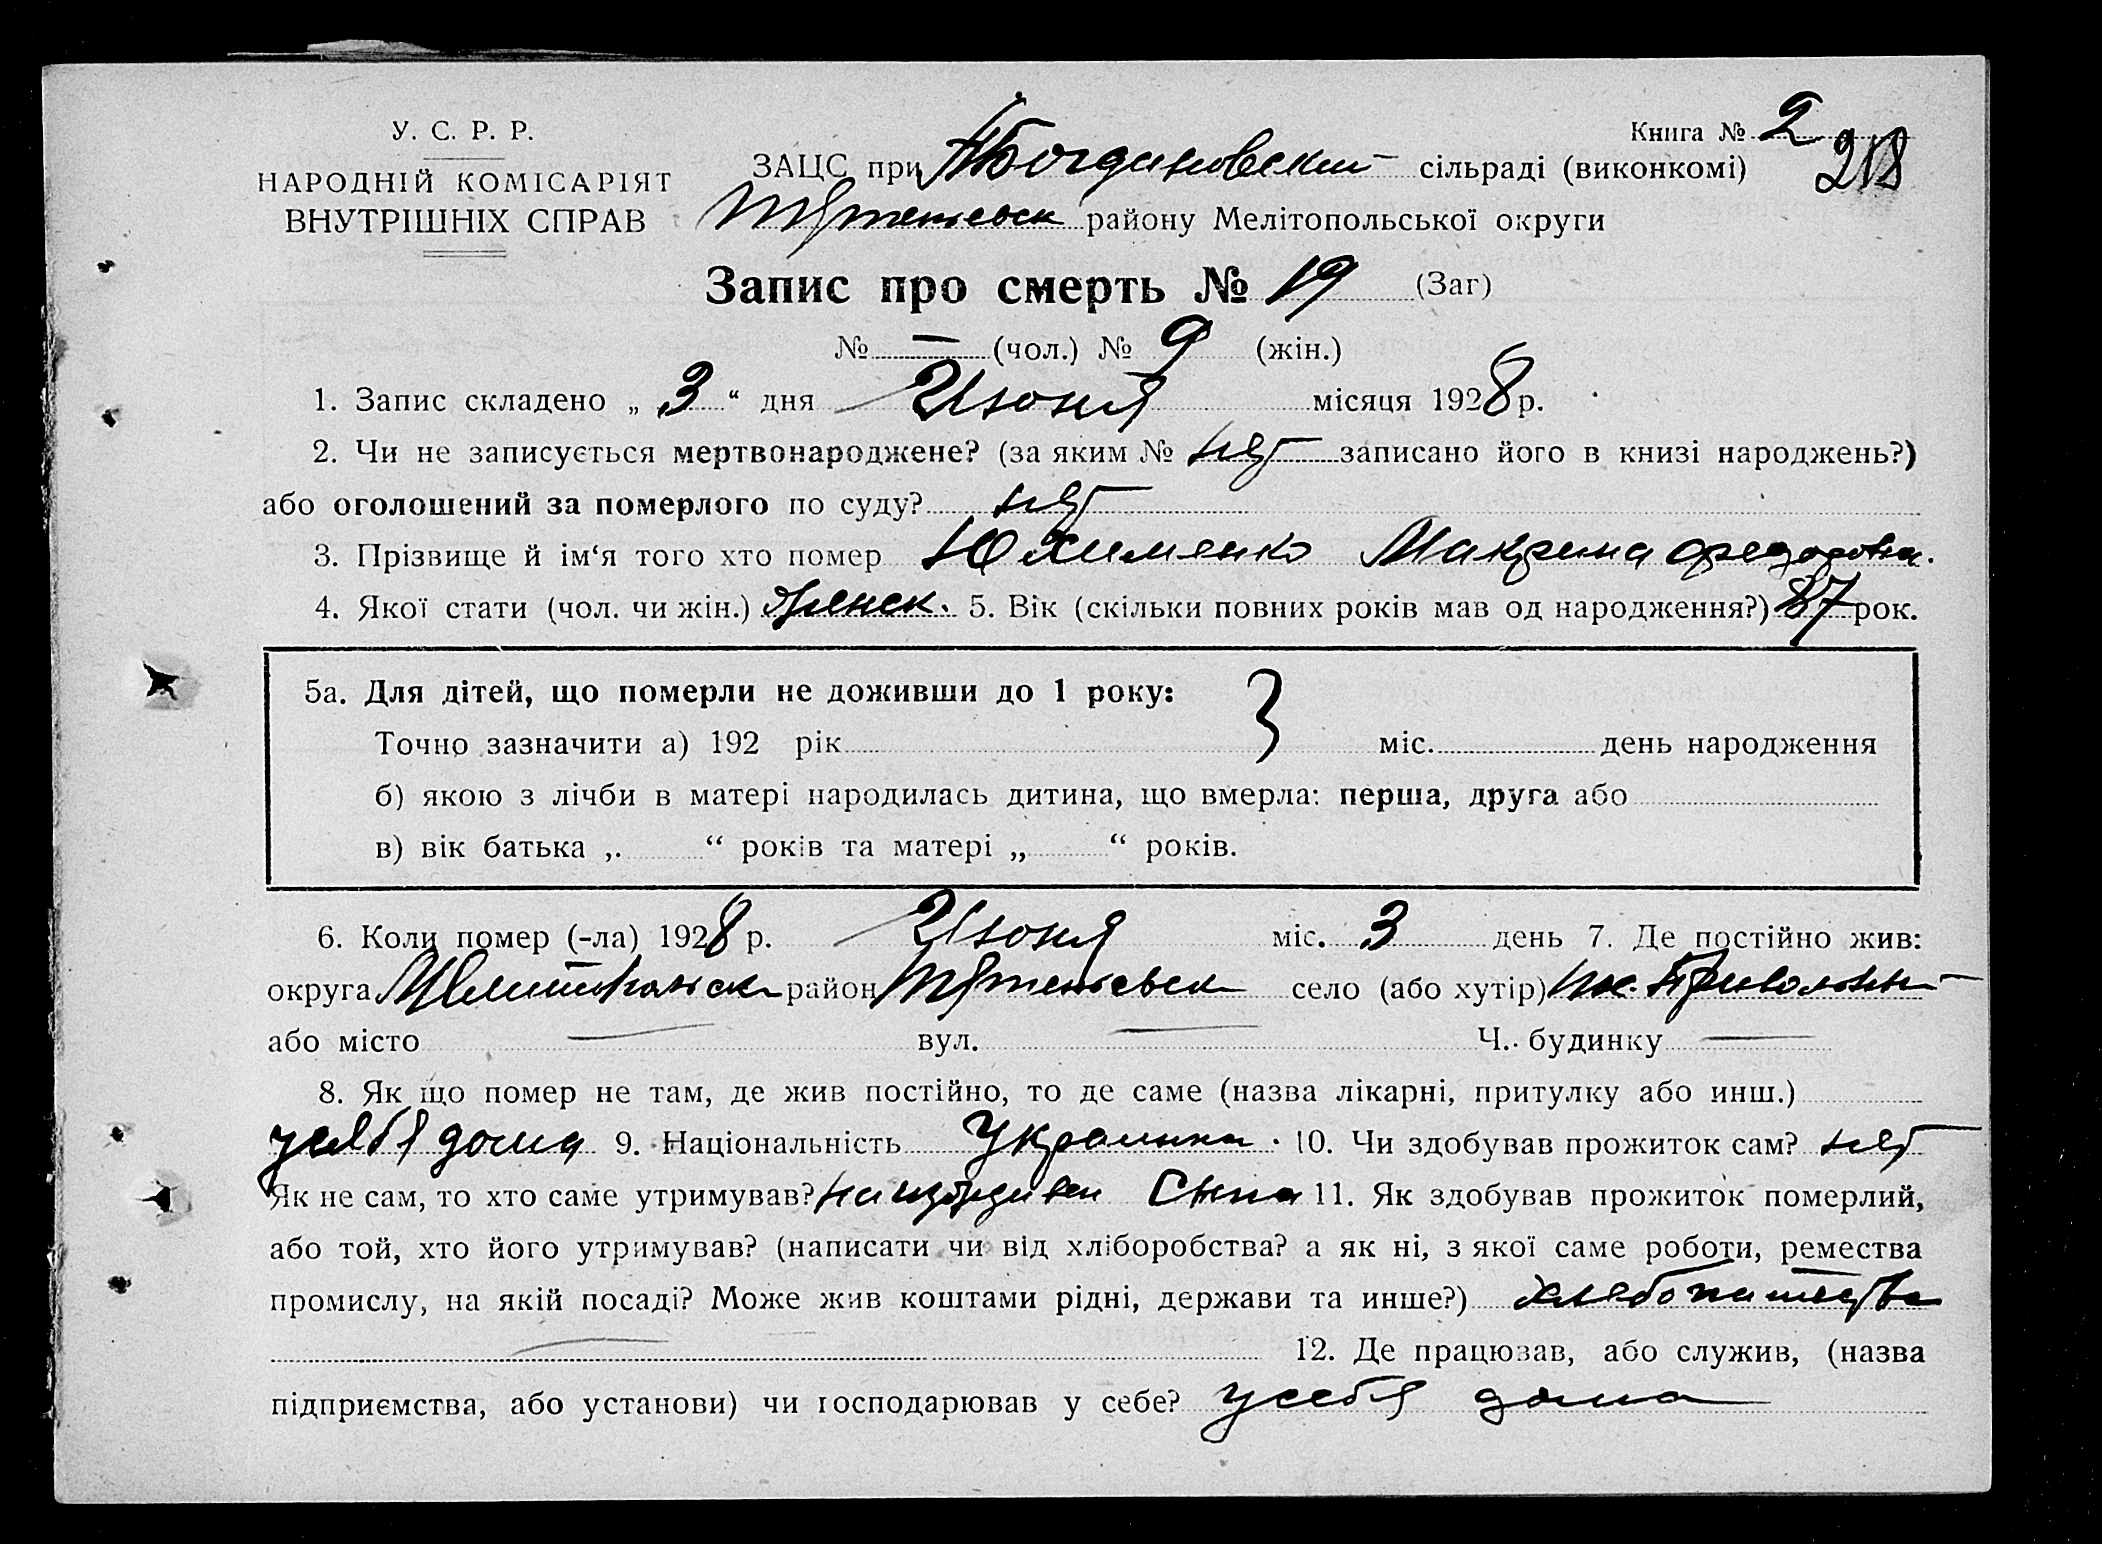 У. С. Р. Р.
НАРОДНІЙ КОМІСАРІЯТ
ВНУТРІШНІХ СПРАВ
Книга № 2
218
ЗАЦС при Богдановский сільраді (виконкомі)
району Мелітопольської округи
Запис про смерть № 19 (Заг)
№ — (чол.) № 9 (жін.)
1. Запис складено „ 3 “ дня Июня місяця 1928 р.
2. Чи не записується мертвонароджене? (за яким № нет записано його в книзі народжень?)
або оголошений за померлого по суду? нет
3. Прізвище й ім‘я того хто помер Юхименко Макрина Федоровна.
4. Якої стати (чол. чи жін.) женск. 5. Вік (скільки повних років мав од народження?) 87 рок.
5а. Для дітей, що померли не доживши до 1 року:
Точно зазначити а) 192 рік міс. день народження
б) якою з лічби в матері народилась дитина, що вмерла: перша, друга або
в) вік батька „ “ років та матері „ “ років.
6. Коли помер (-ла) 1928 р. Июня міс. 3 день 7. Де постійно жив:
округа Мелитопольск район село (або хутір)
або місто — вул. — Ч. будинку —
8. Як що помер не там, де жив постійно, то де саме (назва лікарні, притулку або инш.)
у себя дома 9. Національність Украинка. 10. Чи здобував прожиток сам? нет
Як не сам, то хто саме утримував? на иждивен Сына 11. Як здобував прожиток померлий,
або той, хто його утримував? (написати чи від хліборобства? а як ні, з якої саме роботи, ремества
промислу, на якій посаді? Може жив коштами рідні, держави та инше?) хлебопашества
12. Де працював, або служив, (назва
підприємства, або установи) чи господарював у себе? у себя дома